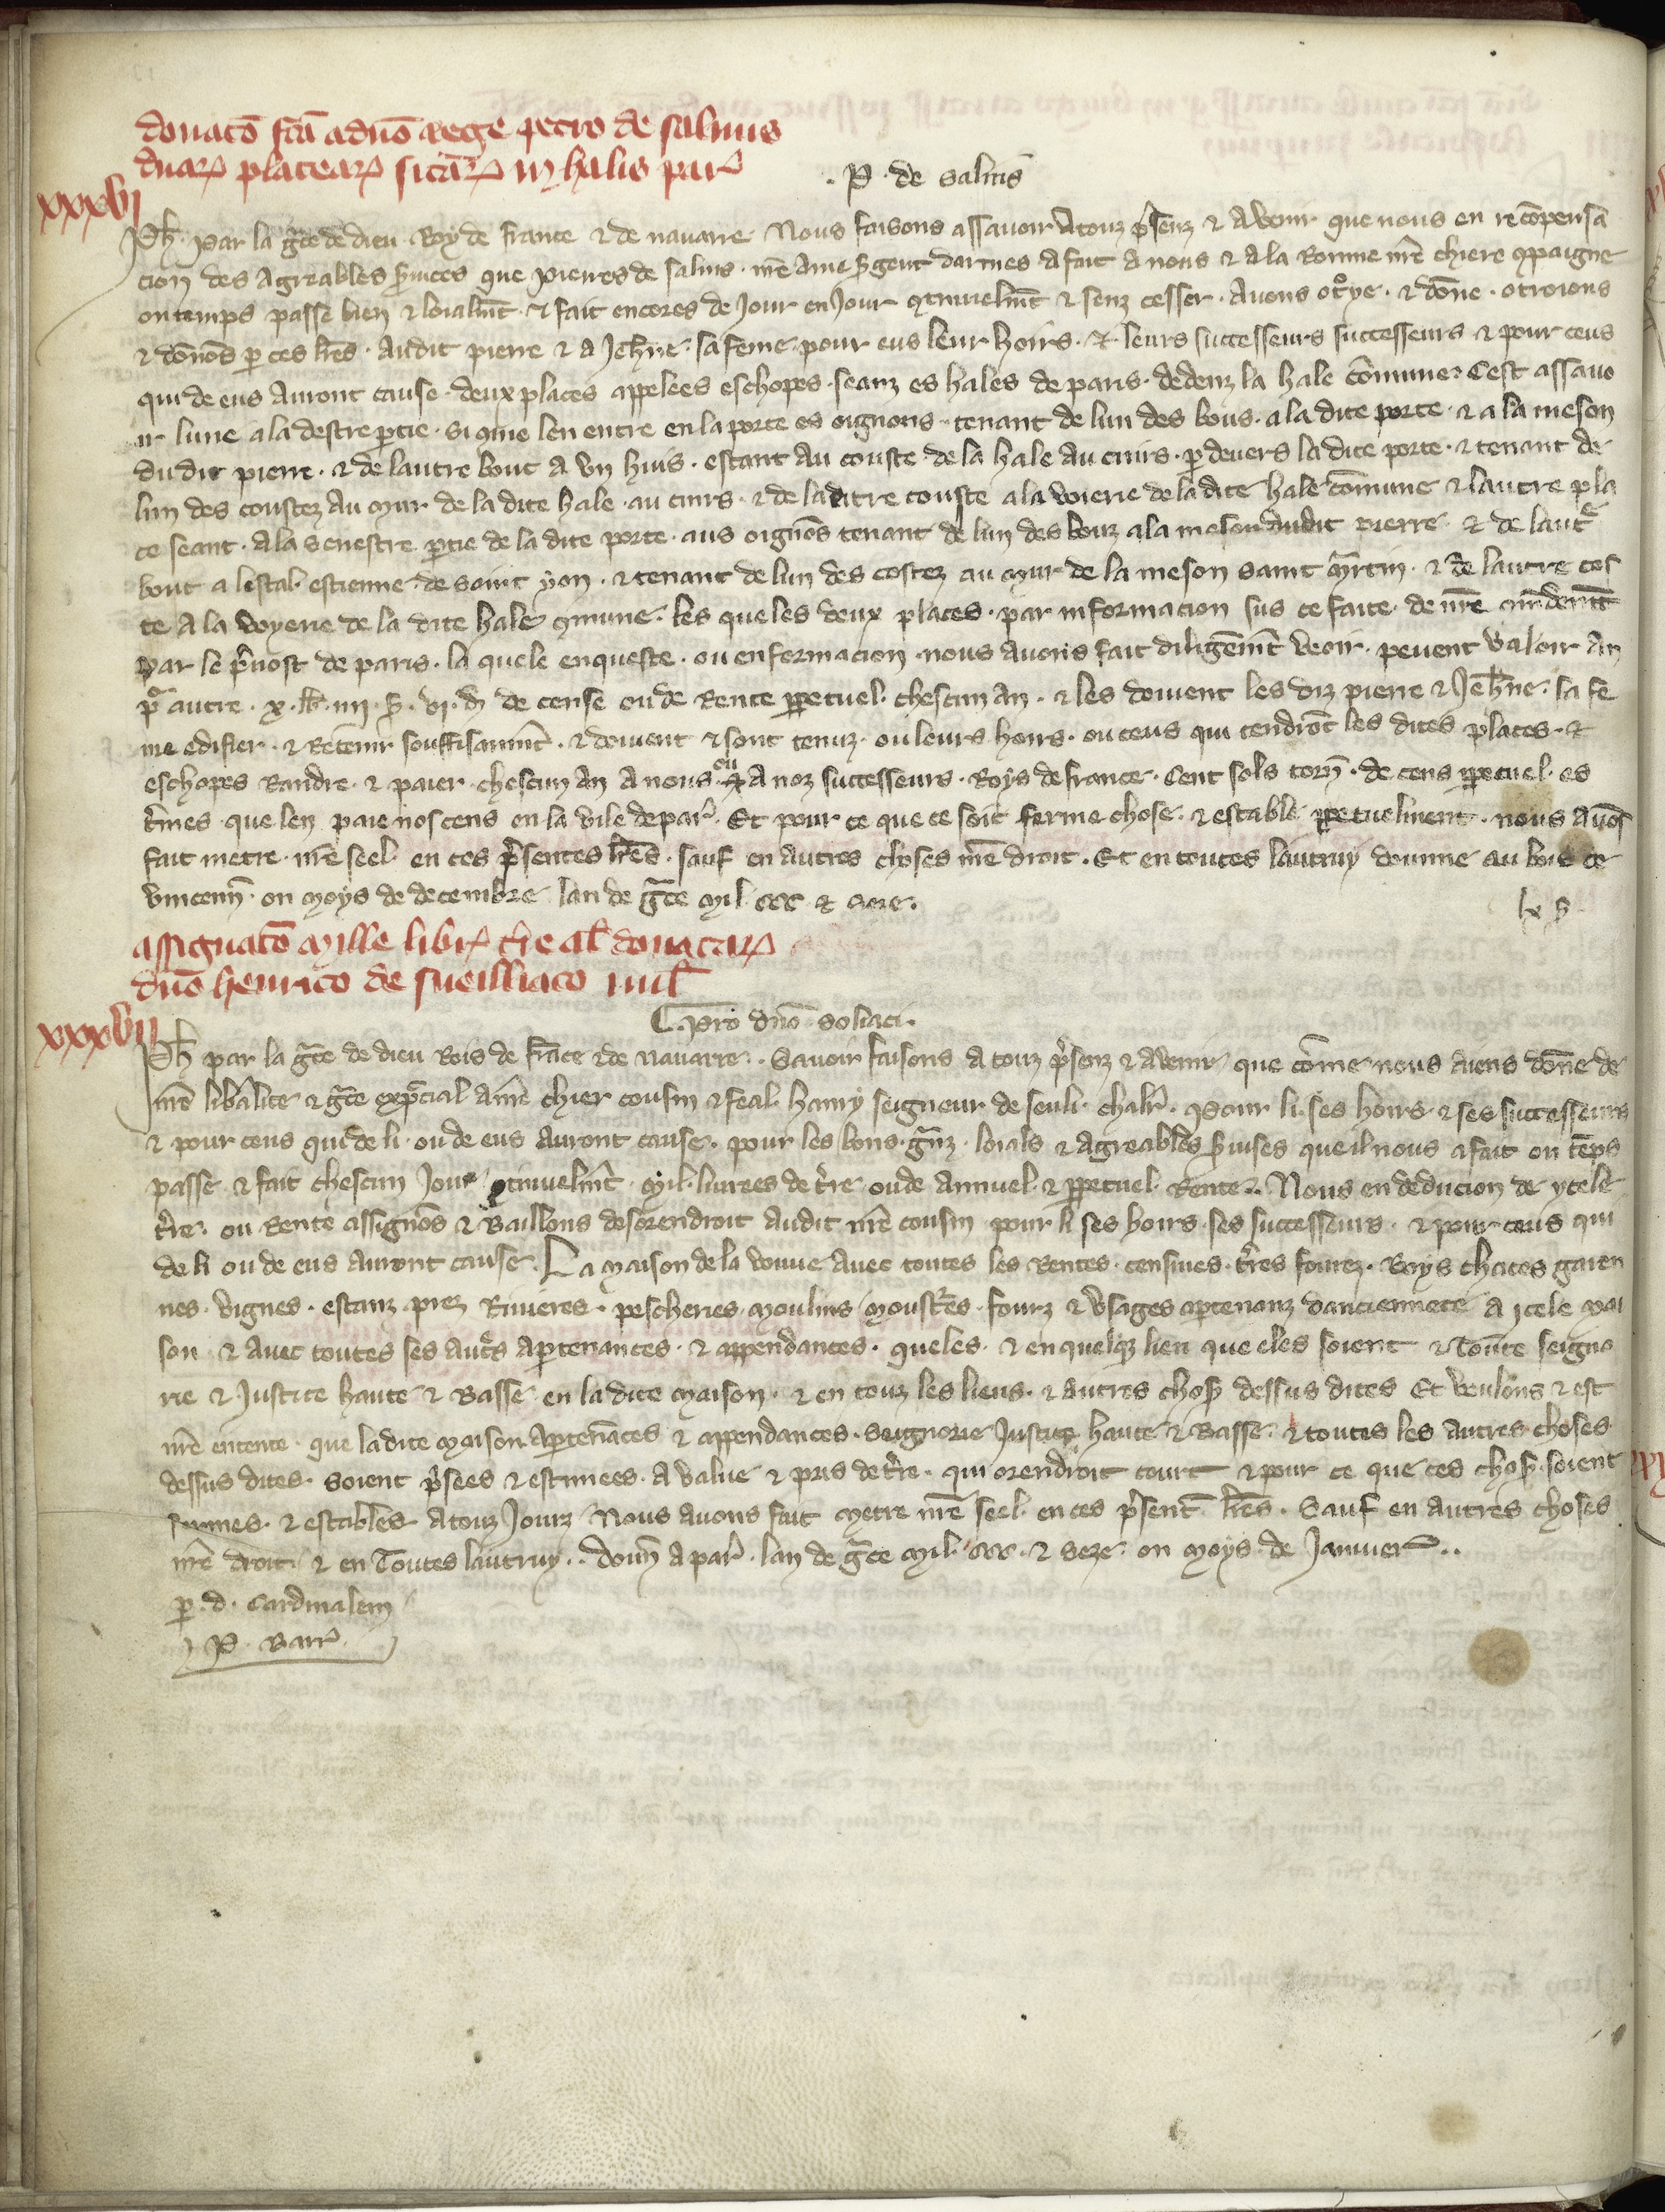 donatō fc̄a a dn̄o rege petro de salinis
duarꝝ placearꝝ sitarꝝ in halis par̄
. P. de salinis
xxxvj
Ph. Par la gr̄ce de dieu Roy de france & de nauarre Nous faisons assauoir Atouz p̄senz & Avenir que nous en recōpensa
cion des Agreables s̄uices que pierres de salins . nr̄e Ame s̄gent darmes A fait a nous & a la Roine nr̄e chiere ꝯpaigne
on temps passe bien & loialmēt & fait encores de Jour en Jour ꝯtinuelmt̄ & senz cesser . Auons otroye . & dōne . otroions
& dōnōs p ces lr̄es . Audit pierre & a Jeh̄ne sa feme pour eus leur hoirs . & leurs successeurs successeurs & pour ceus
qui de eus Auront cause . deux places appelees eschopes . seanz es hales de paris . dedenz la hale cōmune. Cest assauo
ir lune a la destre ꝑtie . si ꝯme len entre en la porte es oignons . tenant de lun des bous . a la dite porte . & a la meson
dudit pierre . & de lautre bout a vn huis . estant Au couste de la hale Au cuirs . ꝑ deuers la dite porte . & tenant de
lun des coustez Au mur de la dite hale . au cuirs . & de lautre couste a la voierie de la dite hale cōmune & lautre pla
ce seant . A la senestre ꝑtie de la dite porte . aus oignōs tenant de lun des bouz a la meson dudit pierre . & de lautr̄
bout a lestal estienne de saint yon . & tenant de lun des costez au mur de la meson saint m̄rtin . & de lautre cos
te A la voyerie de la dite hale ꝯmune . les queles deux places . par informacion sus ce faite . de nr̄e mādemt̄
par le p̄uost de paris . la quele enqueste . ou enformacion nous auons fait diligēmt̄ veoir . peuent valoir An
pr̄ autre . x . lb̄ . iiij . s̄ . vj . d̄ de cense ou de Rente ꝑpetuel chescun An . & les doiuent les diz pierre & Jeh̄ne . sa fe
me edifier . & Retenir souffisamnt̄ . & doiuent & sont tenuz . ou leurs hoirs . ou ceus qui tendrōt les dites places . &
eschopes Randre . & paier . chescun An A nous ou A noz successeurs . Roys de france . Cent sols torn̄ . de cens ꝑpetuel . es
t̄mes que len paie nos cens en la vile de par̄ . Et pour ce que ce soit ferme chose . & estable ꝑpetuelment . nous Auōs
fait metre nr̄e seel en ces p̄sentes lr̄es . sauf en Autres choses nr̄e droit . Et en toutes lautruy donne au bois de
vincenn̄ . on moys de decembre lan de gr̄ce mil ccc & seze .
lx s̄
assignatō mille librꝝ tr̄e al̄ donatarꝝ
dn̄o henrico de sueilliaco mil̄
Pro dn̄o Soliaci .
xxxvij
Ph par la gr̄ce de dieu Rois de frāce & de nauarre . . Sauoir faisons A touz p̄senz & Avenir que cōme nous aiens dōne de
nr̄e liberalite & gr̄ce esp̄cial A nr̄e chier cousin & feal hanry seigneur de seuli chalr̄ . Pour li ses hoirs & ses successeurs
& pour ceus qui de li . ou de eus Auront cause . pour les bons . gr̄nz . loials & Agreables s̄uises que il nous a fait on tēps
passe & fait chescun Jour ꝯtinuelmt̄ . mil liurees de tr̄e ou de Annuel & ꝑpetuel Rente . . Nous en deducion de ycele
tr̄e . ou Rente assignōs & Baillons desorendroit Audit nr̄e cousin pour li ses hoirs ses successeurs . & pour ceus qui
de li ou de eus auront cause . La maison de la vouue auec toutes les Rentes . censiues . tr̄es fourez . Boys chaces garen
nes . vignes . estanz . prez Riuieres . pescheries moulins moustr̄es . fourz & vsages aꝑtenanz danciennete A icele mai
son & auec toutes ses aut̄s Aꝑtenances . & appendances . queles . & en quelqȝ lieu que eles soient & Toute seigno
rie & Justice haute & Basse en la dite maison . & en touz les lieus . & autres chos̄ dessus dites Et veulons & est
nr̄e entente . que la dite maison Aꝑtenāces & appendances . Seignorie Justice haute & Basse . & toutes les Autres choses
dessus dites . soient p̄sees & estimees . A value & pris de tr̄e . qui orendroit court & pour ce que ces chos̄ . soient
fermes . & estables A touz Jourz Nous auons fait metre nr̄e seel en ces p̄sent̄ lr̄es . Sauf en autres choses
nr̄e droit & en Toutes lautruy . . Donn̄ a par̄ . lan de gr̄ce mil . ccc . & seze on moys de Januier . .
ꝑ . d . Cardinalem
P . Barr̄